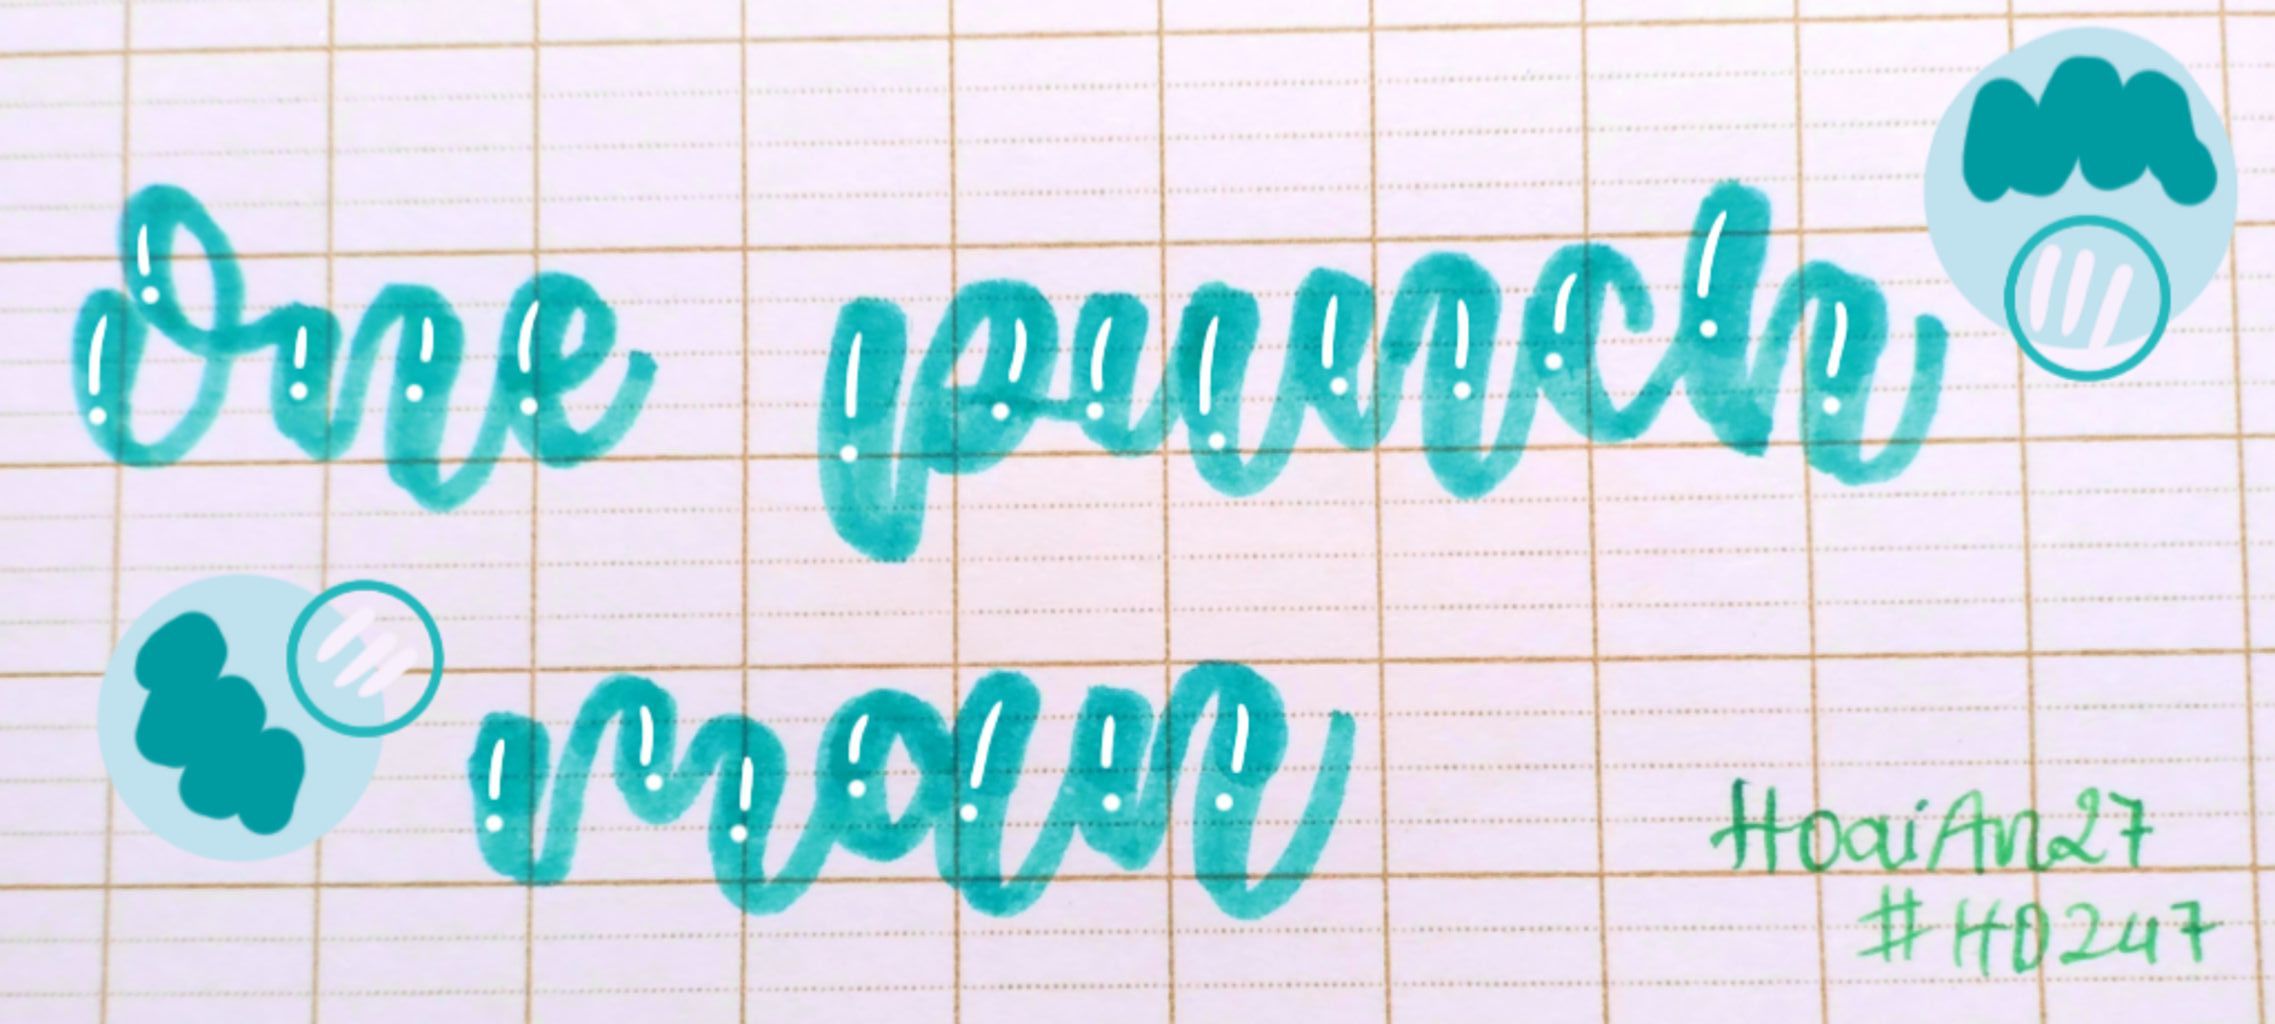 One punch
man
HoaiAn27
#HD247